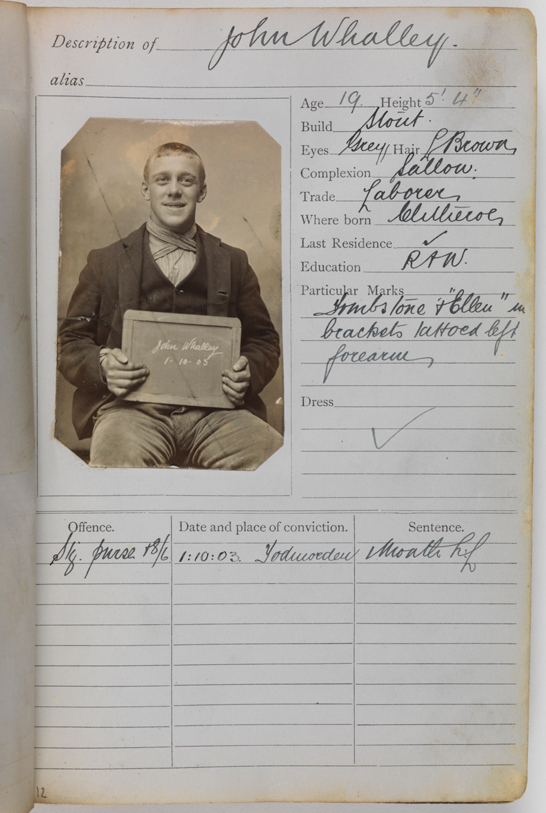 Description of John Whalley.
alias
Age 19 Height 5' 4"
Build Stout.
Eyes Grey Hair L Brown
Complexion Sallow.
Trade Laborer
Where born Clitheroe
Last Residence ✓
Education R & W.
Particular Marks
Tombstone & "Ellen" in
brackets tattoed left
forearm
Dress
✓
John Whalley
1-10-03
Offence. Date and place of conviction. Sentence.
Stg. purse & 8/6 1:10:03. Todmorden 1 Month H L
12